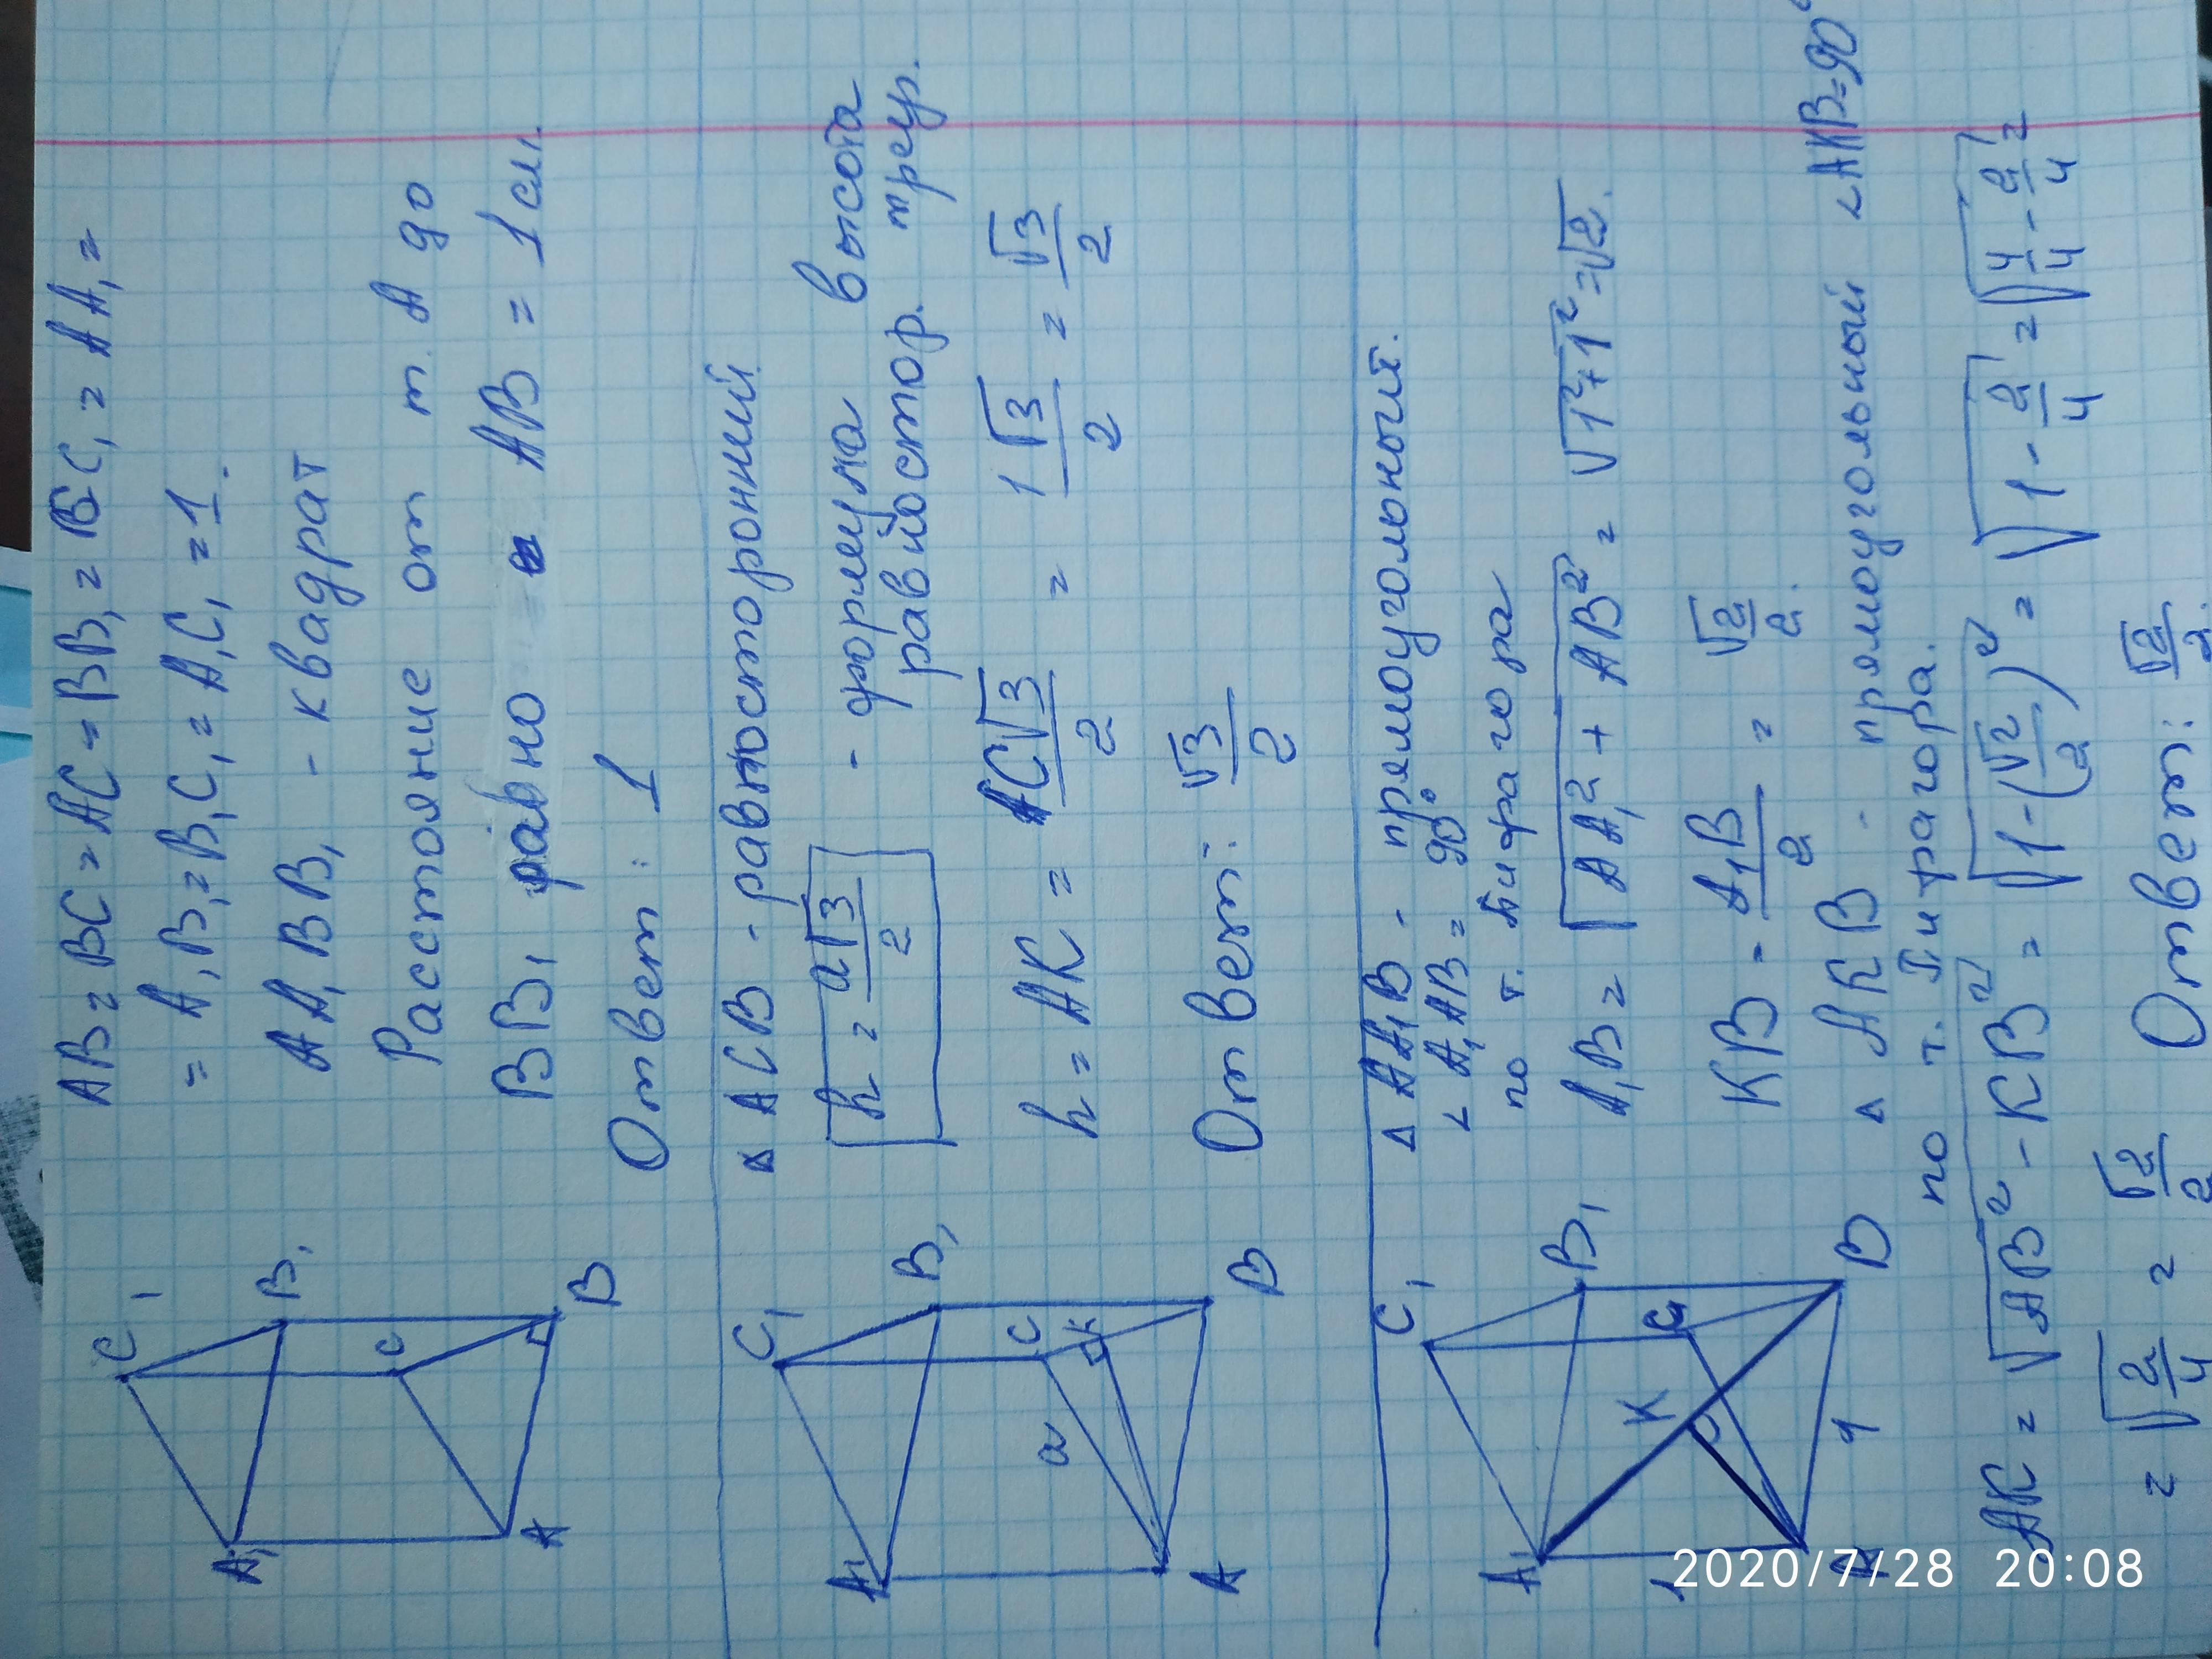 AB = BC = AC = BB₁ = BC₁ = AA₁ =
= A₁B₁ = B₁C₁ = A₁C₁ = 1.
AA₁BB₁ - квадрат
Расстояние от т. A до
BB₁ равно AB = 1 см.
Ответ: 1
C₁
B₁
A₁
C
A
B
△ ACB - равносторонний
h = a√3/2 - формула высота
равностор. треуг.
h = AK = AC√3/2 = 1√3/2 = √3/2
Ответ: √3/2
C₁
B₁
A₁
C
K
a
A
B
△ AA₁B - прямоугольный.
∠ A₁AB = 90°
по т. Пифагора
A₁B = √AA₁² + AB² = √1² + 1² = √2.
KB = A₁B/2 = √2/2.
△ AKB - прямоугольный ∠AKB = 90°
по т. Пифагора.
AK = √AB² - KB² = √1 - (√2/2)² = √1 - 2/4 = √4/4 - 2/4 =
= √2/4 = √2/2 Ответ: √2/2.
C₁
B₁
A₁
K
C
1
1
A
B
2020/7/28 20:08